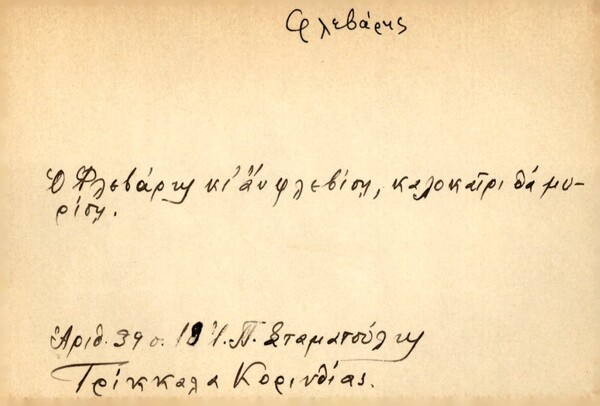 Φλεβάρης
Ὁ Φλεβάρης κι' ἄν φλεβίση, καλοκαῖρι θά μυ-
ρίση.
Ἀριθ. 39 σ. 19 Ι. Π. Σταματούλης
Τρίκκαλα Κορινθίας.